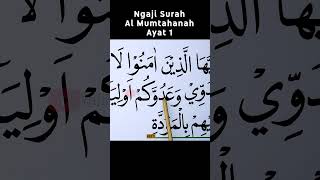 Ngaji Surah
Al Mumtahanah
Ayat 1
يُّهَا الَّذِيْنَ اٰمَنُوْا لَا
دُوِّيْ وَعَدُوَّكُمْ اَوْلِيَ
هِمْ بِالْمَوَدَّةِ